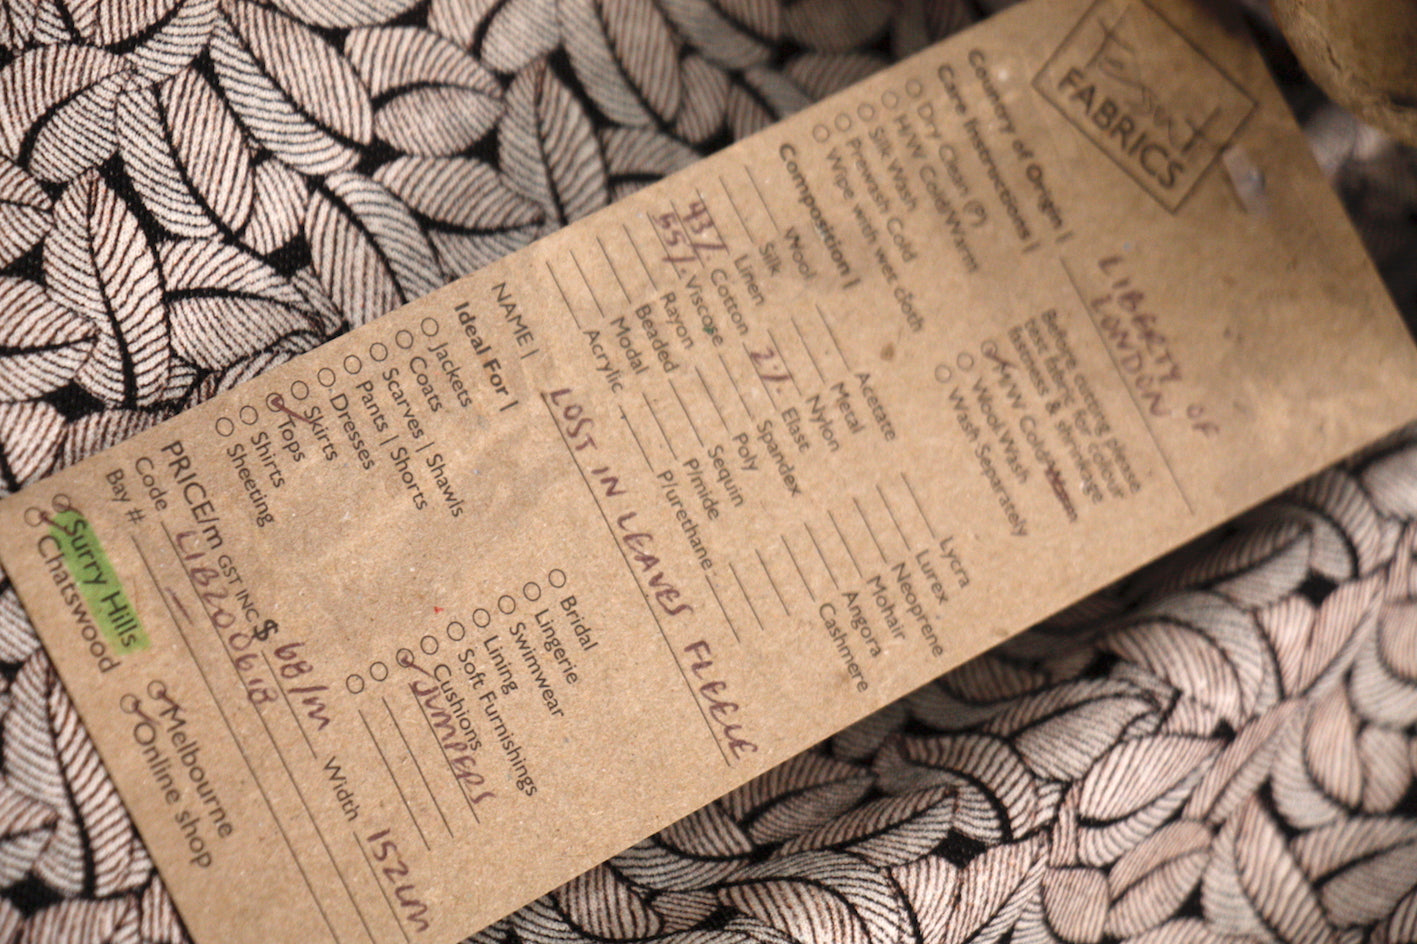 Tessuti
FABRICS
LIBERTY OF
LONDON
Country of Origin |
Care Instructions |
Dry Clean (P)
H/W Cold/Warm
Silk Wash
Prewash Cold
Wipe with wet cloth
Before cutting please
test fabric for colour
fastness & shrinkage
H/W Cold/Warm
Wool Wash
Wash Separately
Composition |
Wool
Silk
Linen
43% Cotton
55% Viscose
Rayon
Beaded
Modal
Acrylic
Acetate
Metal
Nylon
2% Elast
Spandex
Poly
Sequin
P/mide
P/urethane
Lycra
Lurex
Neoprene
Mohair
Angora
Cashmere
NAME | LOST IN LEAVES FLEECE
Ideal For |
Jackets
Coats
Scarves | Shawls
Pants | Shorts
Dresses
Skirts
Tops
Shirts
Sheeting
Bridal
Lingerie
Swimwear
Lining
Soft Furnishings
Cushions
JUMPERS
PRICE/m GST INC $ 68/m Width 152cm
Code LIB200618
Bay # —
Surry Hills
Chatswood
Melbourne
Online shop